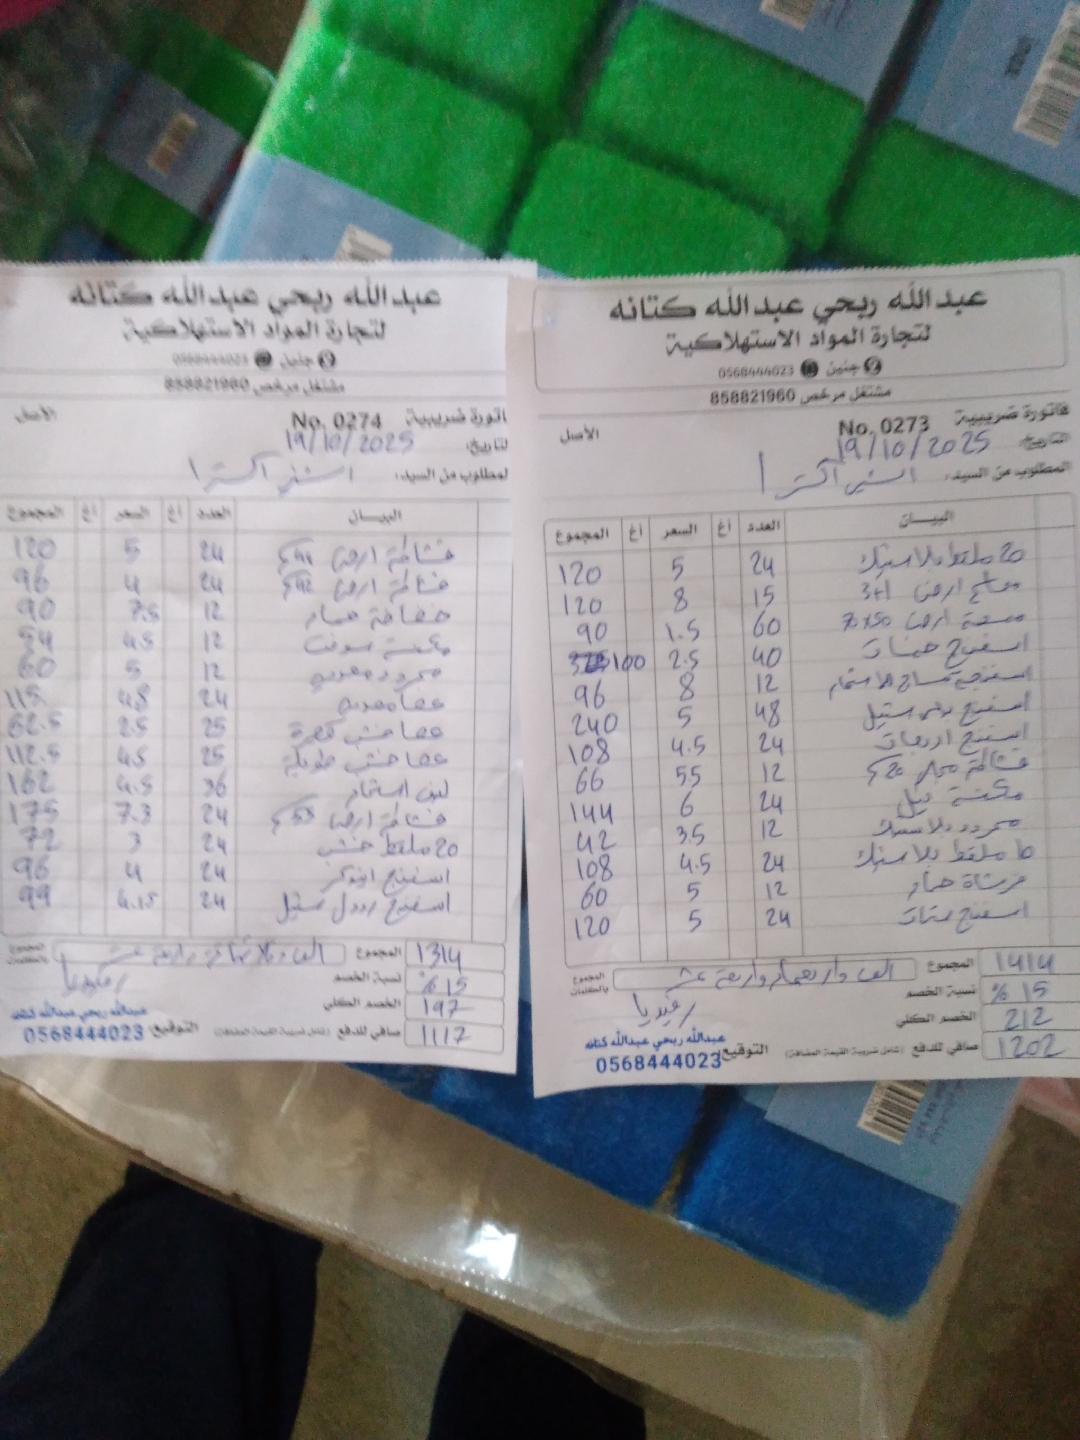 عبدالله ربحي عبدالله كتانه
لتجارة المواد الاستهلاكية
جنين 0568444023
مشتغل مرخص 858821960
فاتورة ضريبية No. 0273 الأصل
التاريخ: 19/10/2025
المطلوب من السيد:
البيان العدد أغ السعر أغ المجموع
20 ملقط بلاستيك 24 5 120
ارض 3+1 15 8 120
ممسحة ارض 70x50 60 1.5 90
اسفنج 40 2.5 100
12 8 96
اسفنج ستيل 48 5 240
اسفنج 24 4.5 108
قشاطة 20 12 55 66
مكنسة 24 6 144
مجرود بلاستيك 12 3.5 42
10 ملقط بلاستيك 24 4.5 108
فرشاة حمام 12 5 60
اسفنج 24 5 120
المجموع 1414
الف واربعماية واربعة عشر المجموع بالكلمات
نسبة الخصم % 15
الخصم الكلي 212
صافي للدفع (شامل ضريبة القيمة المضافة) 1202
التوقيع
عبدالله ربحي عبدالله كتانه
0568444023
عبدالله ربحي عبدالله كتانه
لتجارة المواد الاستهلاكية
جنين 0568444023
مشتغل مرخص 858821960
اتورة ضريبية No. 0274 الأصل
لتاريخ: 19/10/2025
لمطلوب من السيد:
البيان العدد أغ السعر أغ المجموع
قشاطة ارض 24 5 120
قشاطة ارض 24 4 96
حمام 12 7.5 90
مكنسة سوفت 12 4.5 54
مجرود معدنية 12 5 60
عصا معدنية 24 4.8 115
عصا خشب قصيرة 25 2.5 62.5
عصا خشب طويلة 25 4.5 112.5
ليف استحمام 36 4.5 162
قشاطة ارض 24 7.3 175
20 ملقط خشب 24 3 72
اسفنج 24 4 96
اسفنج ستيل 24 4.15 99
المجموع 1314
الف وثلاثماية واربعة عشر
نسبة الخصم %15
الخصم الكلي 197
صافي للدفع (شامل ضريبة القيمة المضافة) 1117
التوقيع
عبدالله ربحي عبدالله كتانه
0568444023